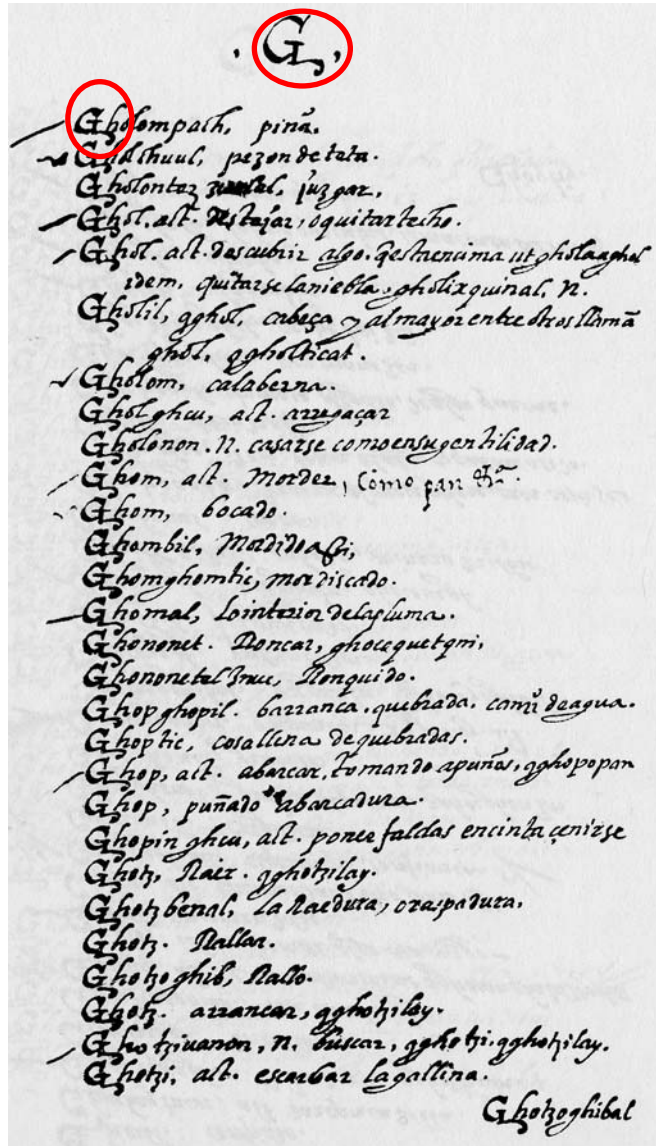 . G,
Gholompach, pinã.
Gholchuul, pezon de teta.
Gholontez juzgar,
Ghol. act. destejar, o quitar techo.
Ghol. act. descubrir algo. q̃ esta encima ut gholaghol
idem, quitarse la niebla. gholixquinal, n.
Gholil, qghol, cabeça y al mayor entre otros llamã
ghol, qgholticat.
Gholom, calaberna.
Gholghcu, act. arregaçar
Gholonon. n. casarse como en su gentilidad.
Ghom, act. Morder, Como pan
Ghom, bocado.
Ghombil, Mordido assi,
Ghomghomtic, mordiscado.
Ghomal, lo interior de la pluma.
Ghononet. Roncar, ghocequetqni,
Ghononetel Ronquido.
Ghopghopil. barranca, quebrada. de agua.
Ghoptic, cosa llena de quebradas.
Ghop, act. abarcar, tomando a puños, qghopopan
Ghop, puñado abarcadura.
Ghopin ghcu, act. poner faldas en cinta, çenirse
Ghotz, Raer. qghotzilay.
Ghotzbenal, la Raedura, o raspadura.
Ghotz. Rallar.
Ghotzoghib, Rallo.
Ghotz. arrancar, qghotzilay.
Ghotzivanon, n. buscar, qghotzi. qghotzilay.
Ghotzi, act. escarbar la gallina.
Ghotzoghibal